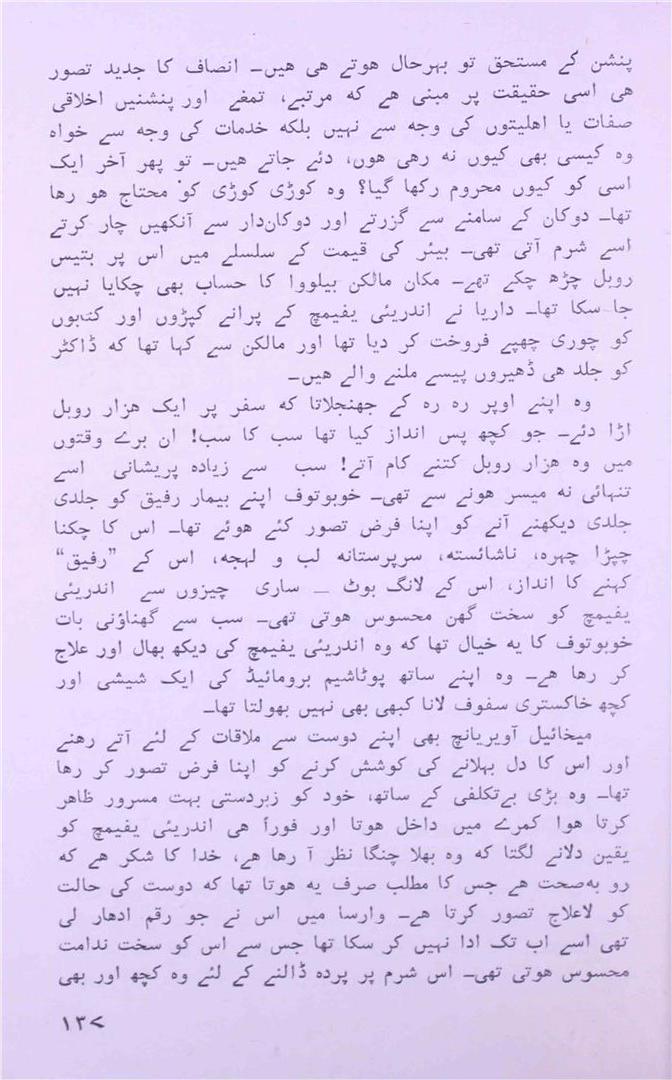 پنشن کے مستحق تو بہرحال ہوتے ہی ہیں۔ انصاف کا جدید تصور
ہی اسی حقیقت پر مبنی ہے کہ مرتبے، تمغے اور پنشنیں اخلاقی
صفات یا اہلیتوں کی وجہ سے نہیں بلکہ خدمات کی وجہ سے خواہ
وہ کیسی بھی کیوں نہ رہی ہوں، دئے جاتے ہیں۔ تو پھر آخر ایک
اسی کو کیوں محروم رکھا گیا؟ وہ کوڑی کوڑی کو محتاج ہو رہا
تھا۔ دوکان کے سامنے سے گزرتے اور دوکاندار سے آنکھیں چار کرتے
اسے شرم آتی تھی۔ بیئر کی قیمت کے سلسلے میں اس پر بتیس
روبل چڑھ چکے تھے۔ مکان مالکن بیلووا کا حساب بھی چکایا نہیں
جا سکا تھا۔ داریا نے اندریئی یفیمچ کے پرانے کپڑوں اور کتابوں
کو چوری چھپے فروخت کر دیا تھا اور مالکن سے کہا تھا کہ ڈاکٹر
کو جلد ہی ڈھیروں پیسے ملنے والے ہیں۔
وہ اپنے اوپر رہ رہ کے جھنجلاتا کہ سفر پر ایک ہزار روبل
اڑا دئے۔ جو کچھ پس انداز کیا تھا سب کا سب! ان برے وقتوں
میں وہ ہزار روبل کتنے کام آتے! سب سے زیادہ پریشانی اسے
تنہائی نہ میسر ہونے سے تھی۔ خوبوتوف اپنے بیمار رفیق کو جلدی
جلدی دیکھنے آنے کو اپنا فرض تصور کئے ہوئے تھا۔ اس کا چکنا
چپڑا چہرہ، ناشائستہ، سرپرستانہ لب و لہجہ، اس کے ”رفیق“
کہنے کا انداز، اس کے لانگ بوٹ — ساری چیزوں سے اندریئی
یفیمچ کو سخت گھن محسوس ہوتی تھی۔ سب سے گھناؤنی بات
خوبوتوف کا یہ خیال تھا کہ وہ اندریئی یفیمچ کی دیکھ بھال اور علاج
کر رہا ہے۔ وہ اپنے ساتھ پوٹاشیم برومائیڈ کی ایک شیشی اور
کچھ خاکستری سفوف لانا کبھی بھی نہیں بھولتا تھا۔
میخائیل آویریانچ بھی اپنے دوست سے ملاقات کے لئے آتے رہنے
اور اس کا دل بہلانے کی کوشش کرنے کو اپنا فرض تصور کر رہا
تھا۔ وہ بڑی بےتکلفی کے ساتھ، خود کو زبردستی بہت مسرور ظاہر
کرتا ہوا کمرے میں داخل ہوتا اور فوراً ہی اندریئی یفیمچ کو
یقین دلانے لگتا کہ وہ بھلا چنگا نظر آ رہا ہے، خدا کا شکر ہے کہ
رو بہصحت ہے جس کا مطلب صرف یہ ہوتا تھا کہ دوست کی حالت
کو لاعلاج تصور کرتا ہے۔ وارسا میں اس نے جو رقم ادھار لی
تھی اسے اب تک ادا نہیں کر سکا تھا جس سے اس کو سخت ندامت
محسوس ہوتی تھی۔ اس شرم پر پردہ ڈالنے کے لئے وہ کچھ اور بھی
۱۳۷